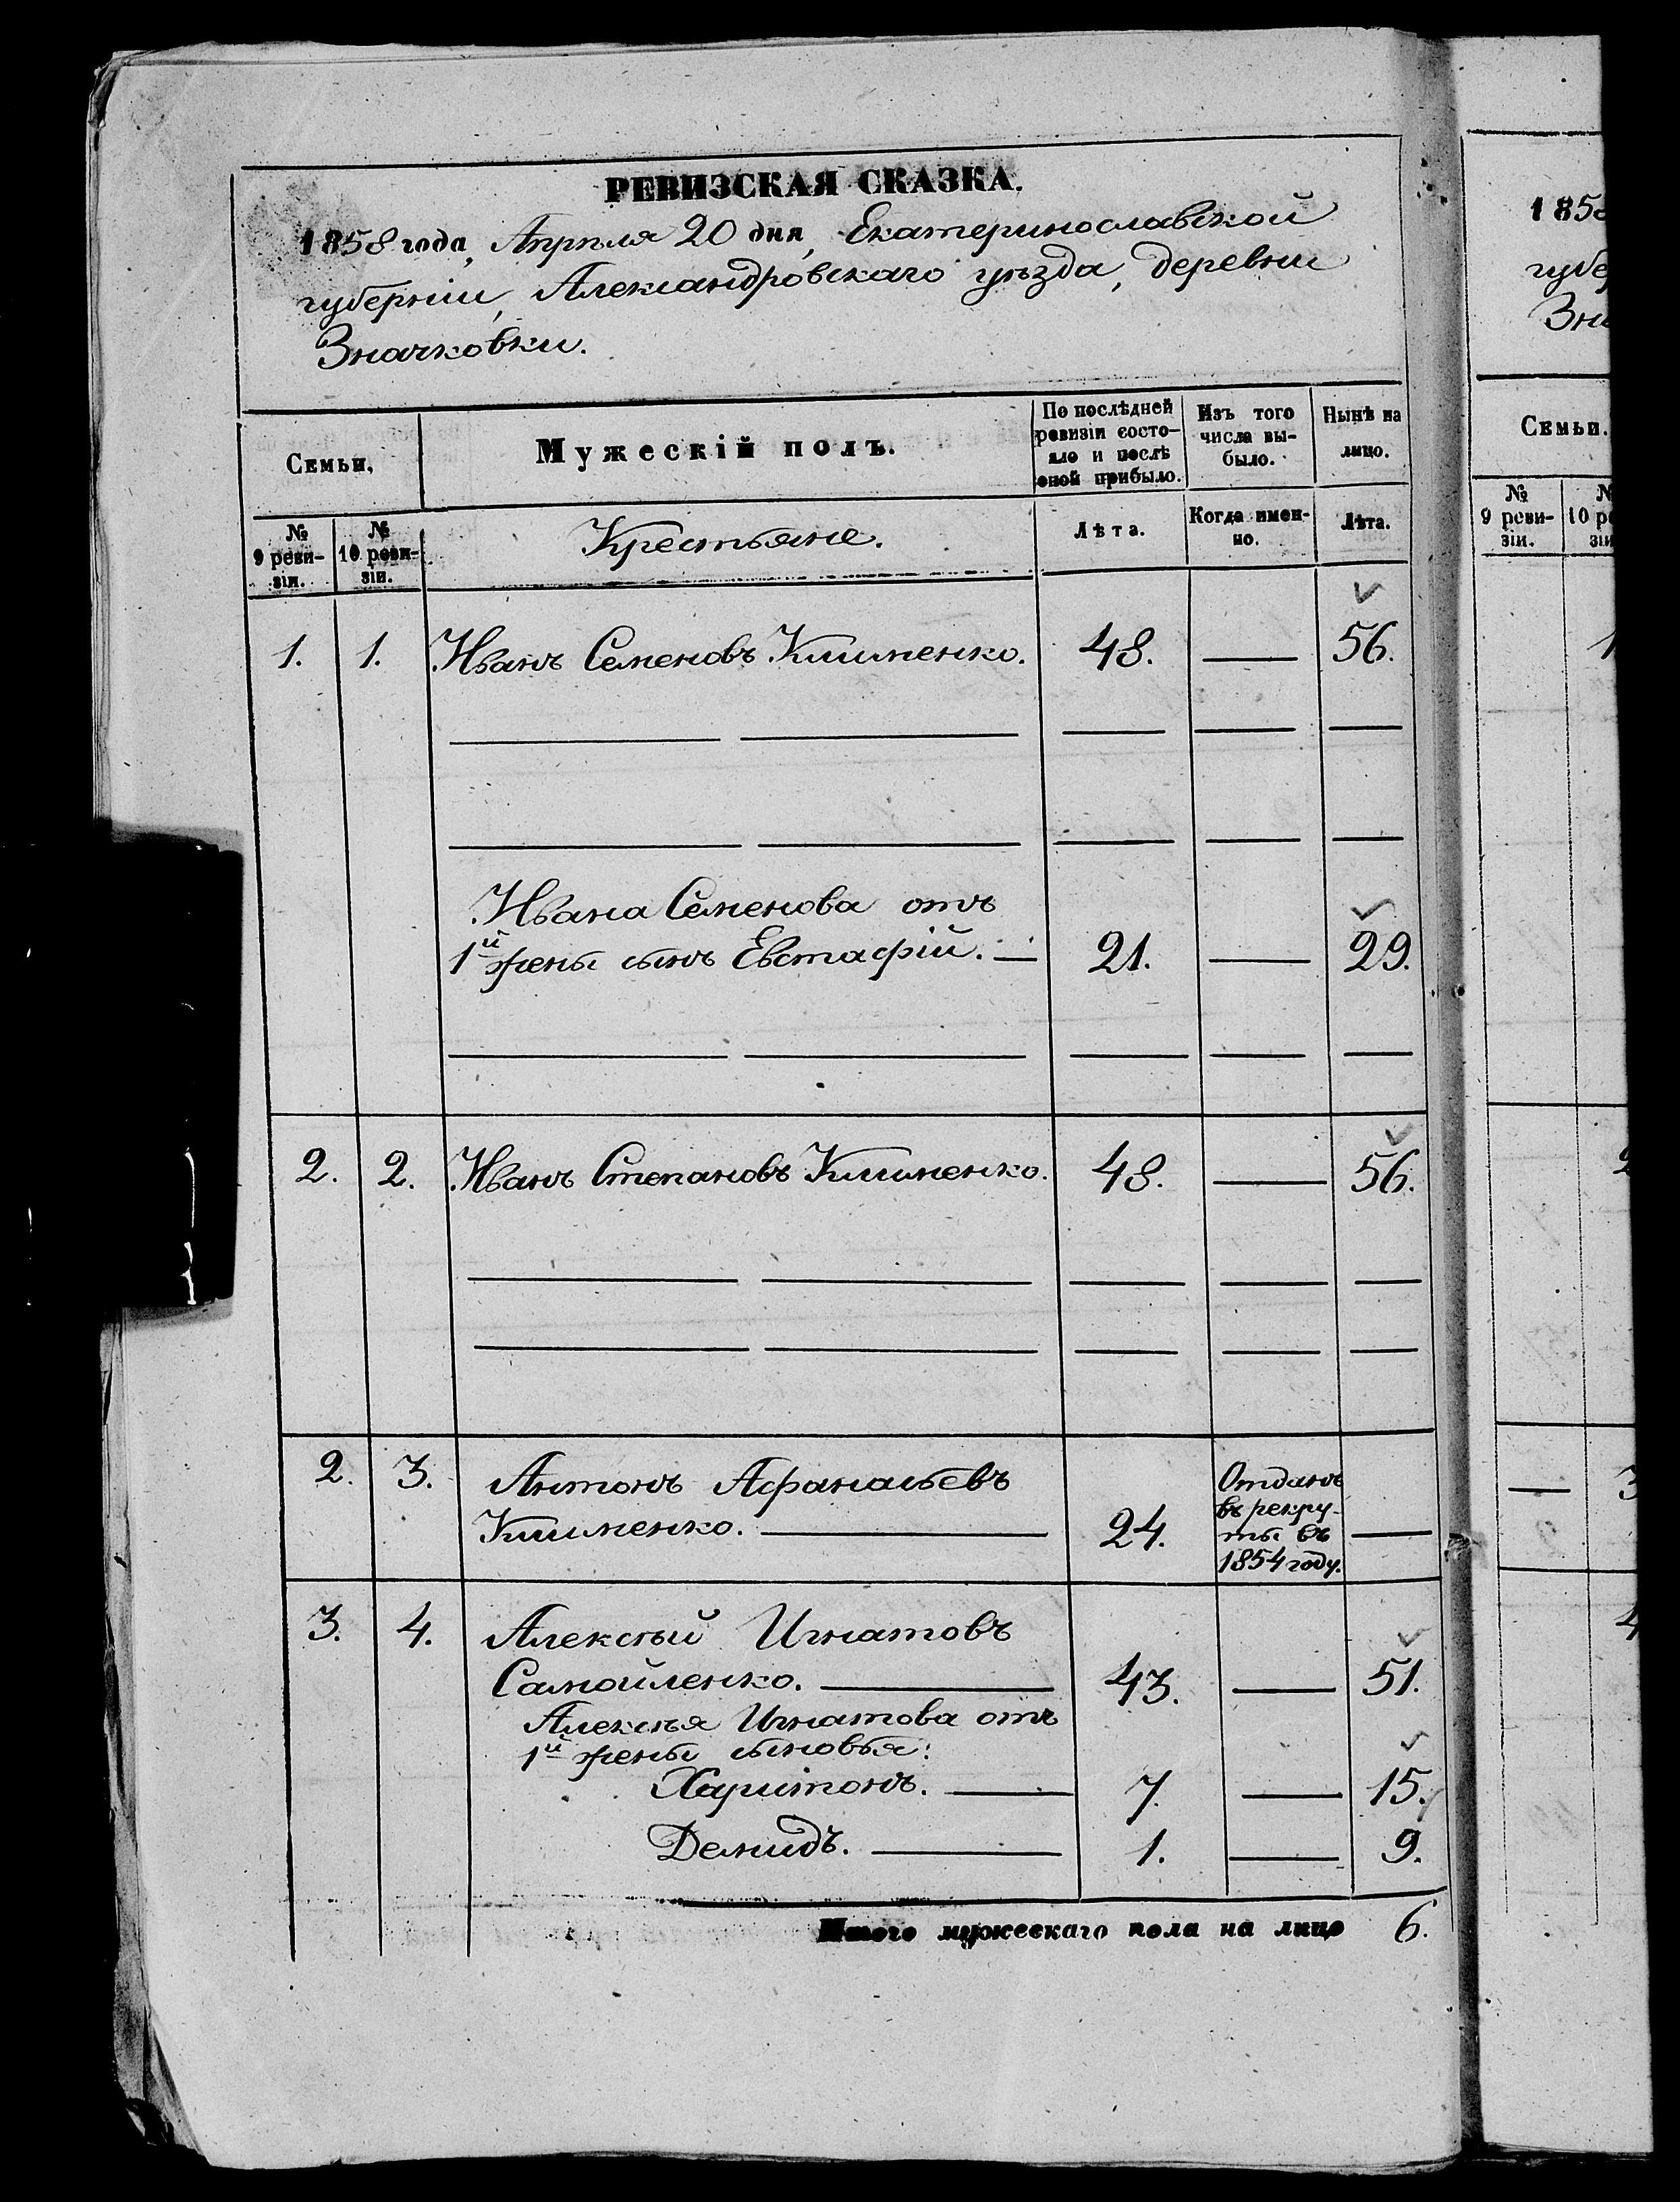 РЕВИЗСКАЯ СКАЗКА.
1858 года, Апрѣля 20 дня, Екатеринославской
губерніи, Александровскаго уѣзда, деревни
Значковки.
Семьи.
Мужескій полъ.
По послѣдней ревизіи состо-
яло и послѣ
оной прибыло.
Изъ того
числа вы-
было.
Нынѣ на
лицо.
№
9 реви-
зіи.
№
10 реви-
зіи.
Крестьяне.
Лѣта.
Когда имен-
но.
Лѣта.
1. 1. Иванъ Семеновъ Клименко. 48. — 56.
Ивана Семенова отъ
1й жены сынъ Евстафій. — 21. — 29.
2. 2. Иванъ Степановъ Клименко. 48. — 56.
2. 3. Антонъ Афанасьевъ
Клименко. — 24.
Отданъ
въ рекру-
ты въ
1854 году.
—
3. 4. Алексѣй Игнатовъ
Самойленко. — 43. — 51.
Алексѣя Игнатова отъ
1й жены сыновья:
Харитонъ. — 7. — 15.
Демидъ. — 1. — 9.
Итого мужескаго пола на лицо 6.
1858
губер
Зна
Семьи.
№
9 реви-
зіи.
№
10 ре
зіи
1
2
— 3
4